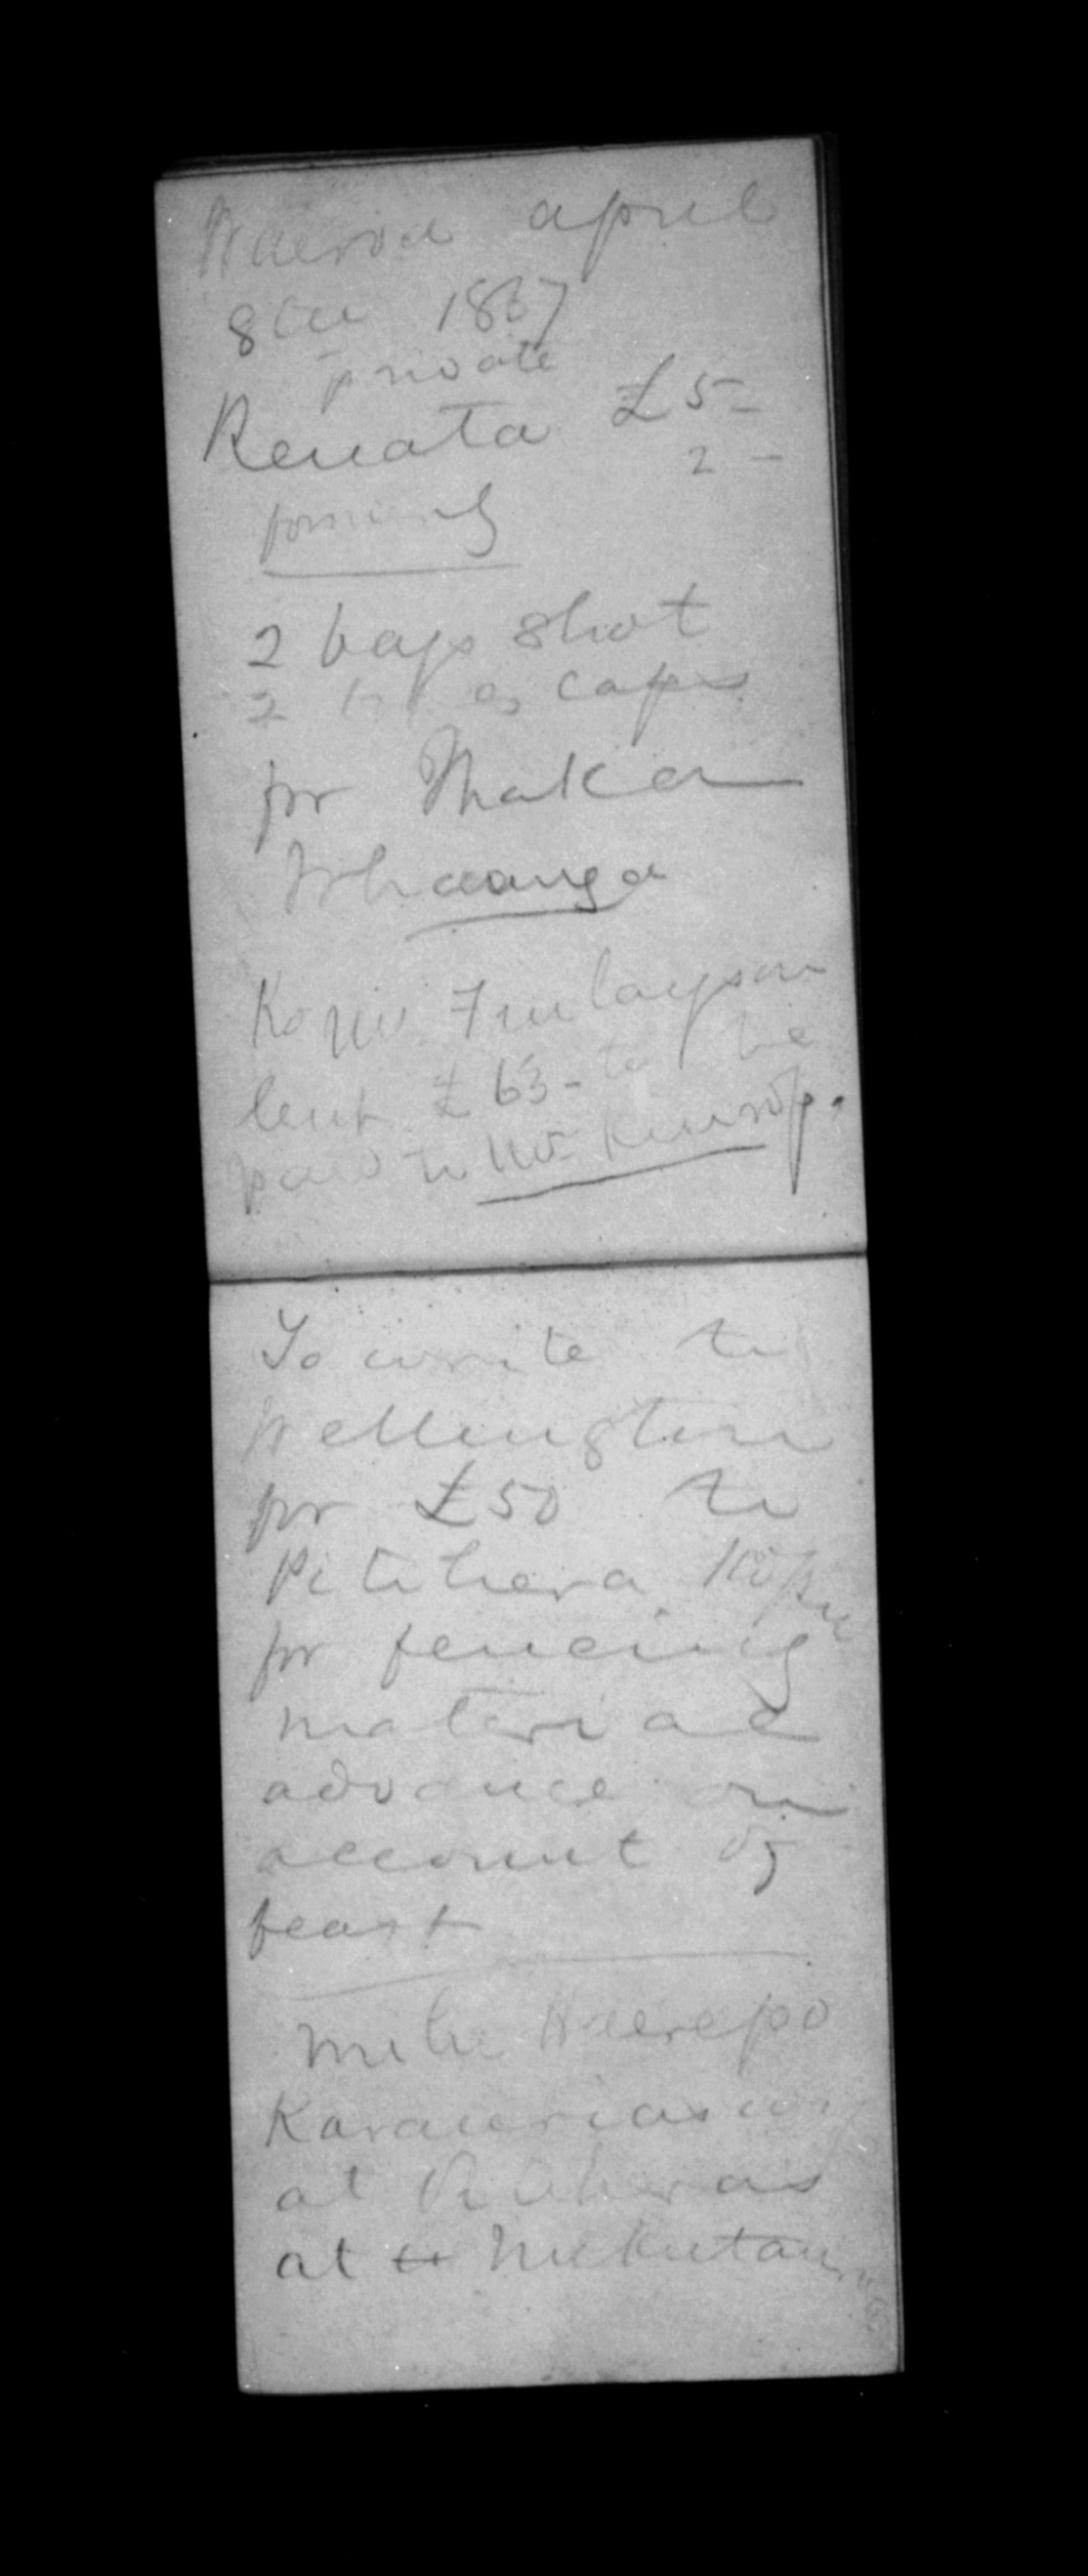 Wairoa april
8th 1867
private
Renata £5 -
2 -
formerly
2 bags shot
2 caps
for Ihaka
Whaanga
Ko Mr Finlayson
lent £63 - to be
paid to Mr Kinross.
To write to
Wellington
for £50 to
Pitihera Kopu
for fencing
material
advance on
account of
feast
Mihi Haerepo
Karaurias
at Pitiheras
at